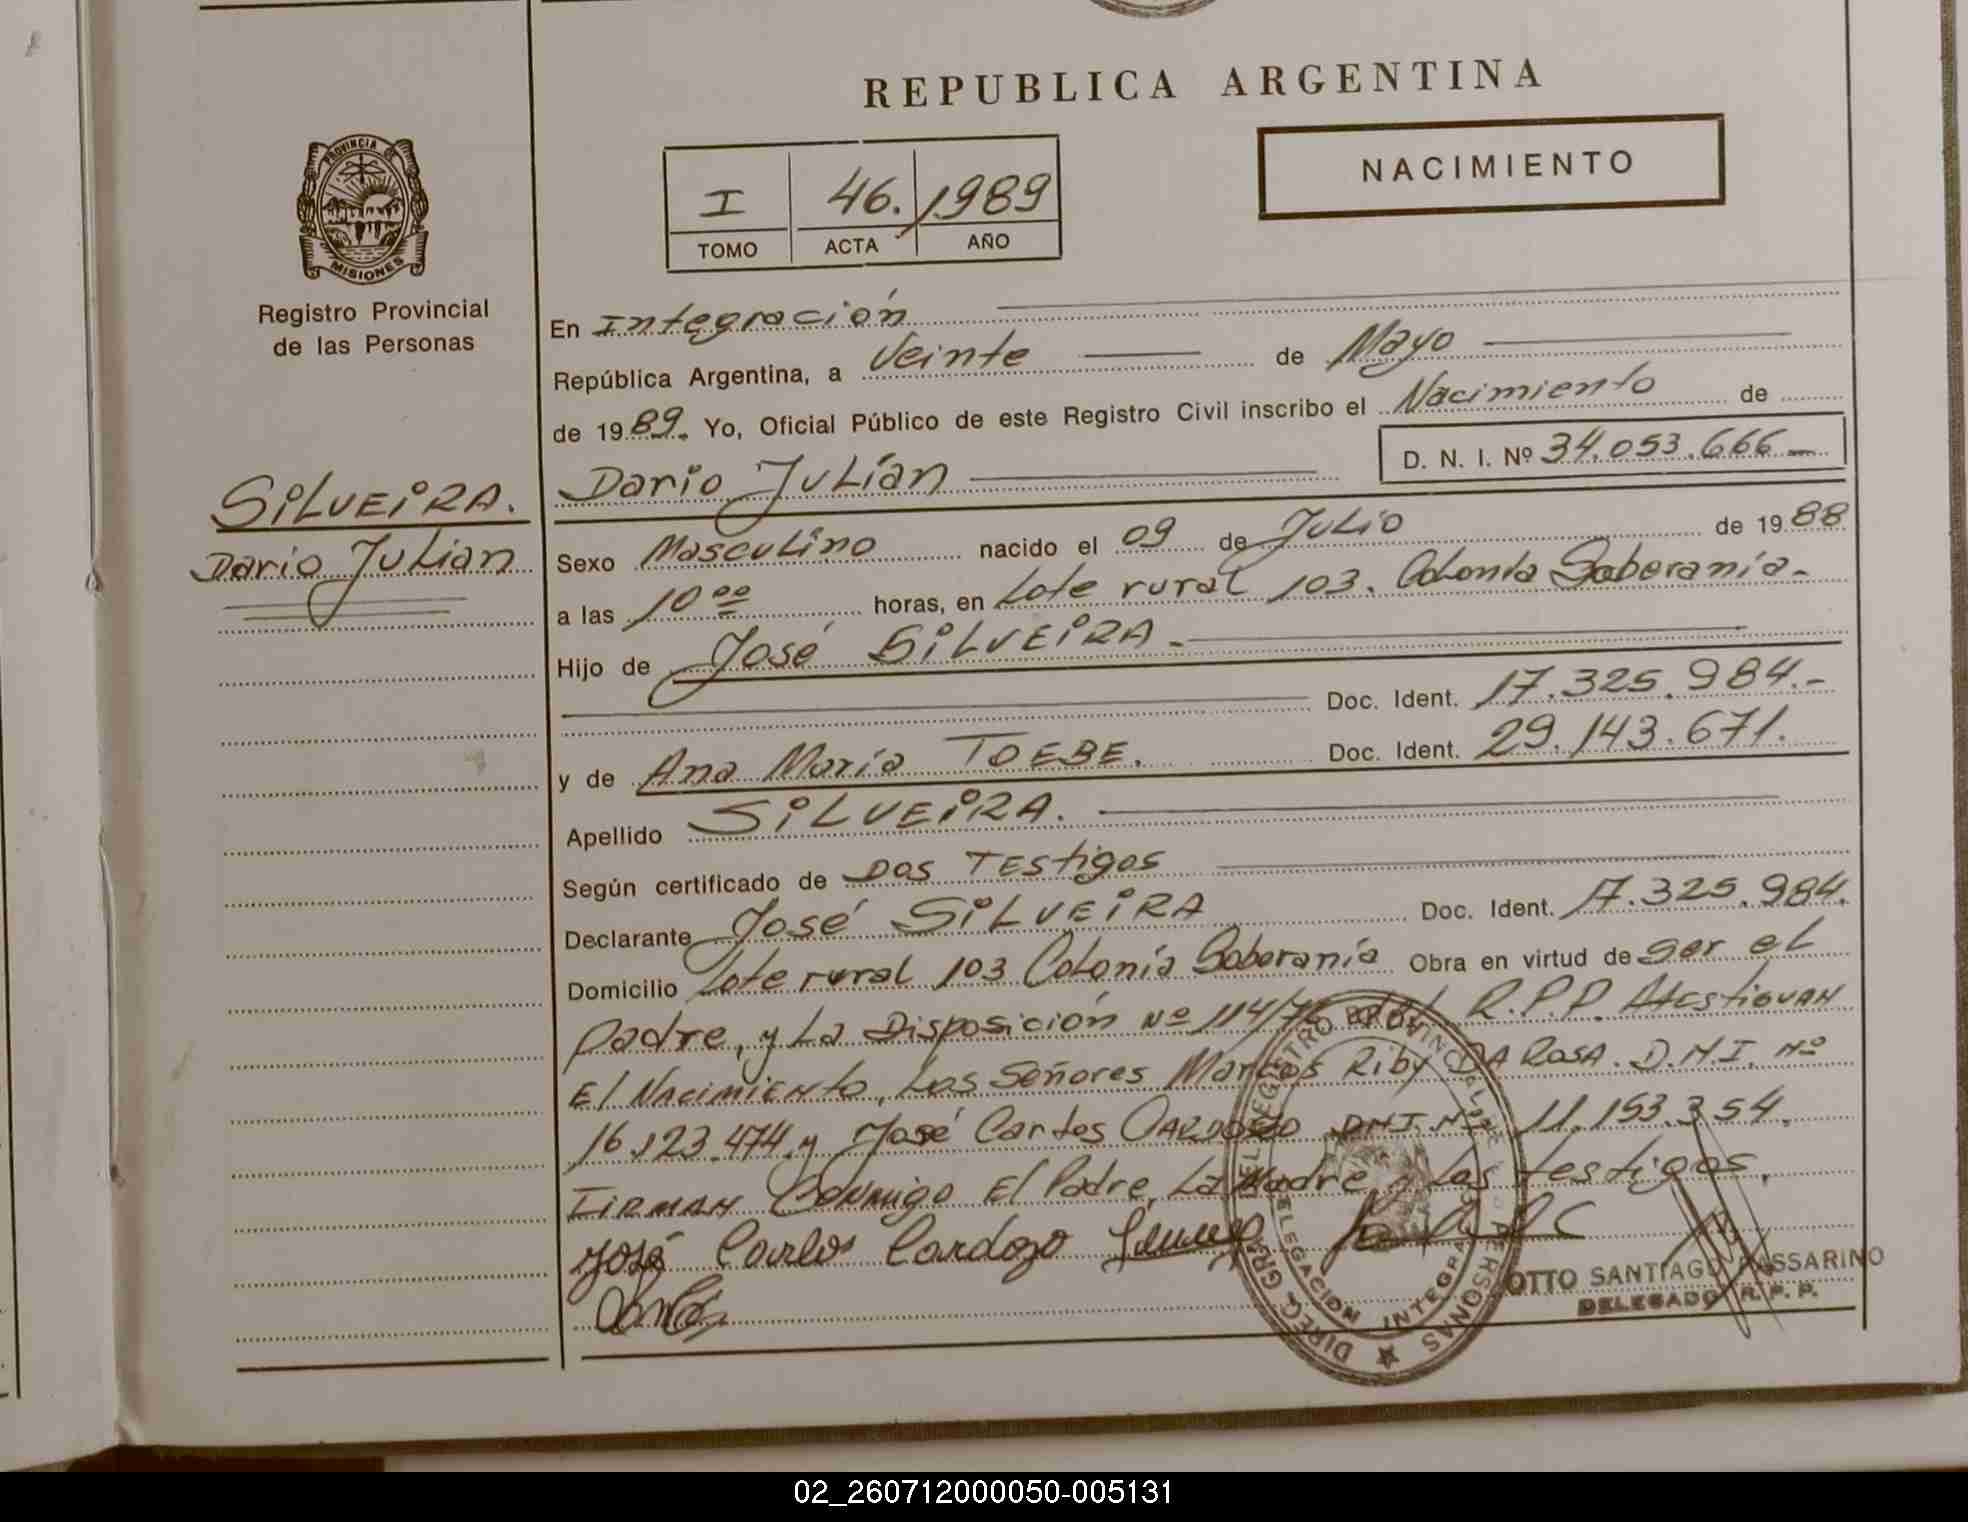 REPUBLICA ARGENTINA
NACIMIENTO
I 46. 1989
TOMO ACTA AÑO
PROVINCIA DE
MISIONES
Registro Provincial
de las Personas
SILVEIRA.
Dario Julian
En Integración
República Argentina, a Veinte de Mayo
de 1989. Yo, Oficial Público de este Registro Civil inscribo el Nacimiento de
Dario Julián D. N. I. Nº 34.053.666
Sexo Masculino nacido el 09 de Julio de 1988
a las 10 00 horas, en Lote rural 103. Colonia Soberanía-
Hijo de José SILVEIRA.-
Doc. Ident. 17.325.984.-
y de Ana María TOEBE. Doc. Ident. 29.143.671.
Apellido SILVEIRA.
Según certificado de Dos Testigos
Declarante José SILVEIRA Doc. Ident. 17.325.984.
Domicilio Lote rural 103 Colonia Soberanía Obra en virtud de ser el
padre, y La Disposición Nº 114/ del R.P.P. Atestiguan
El Nacimiento, Los Señores Marcos Riby DA ROSA. D.N.I. Nº
16.123.474 y José Carlos CARDOZO DNI. Nº 11.153.354.
Firman Conmigo El Padre, La Madre y Los testigos.
José Carlos Cardozo
OTTO SANTIAGO PASSARINO
DELEGADO R. P. P.
DIREC. GRAL. DEL REGISTRO PROVINCIAL DE LAS PERSONAS
DELEGACION INTEGRA
02_260712000050-005131